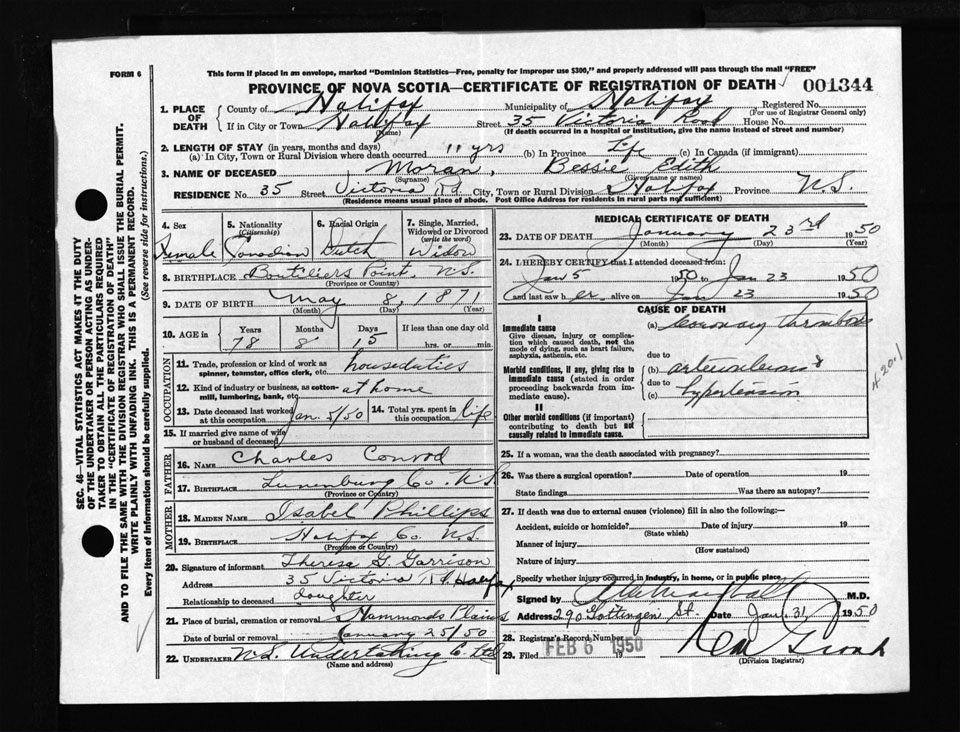 FORM 6
This form if placed in an envelope, marked "Dominion Statistics—Free, penalty for improper use $300," and properly addressed will pass through the mail "FREE"
PROVINCE OF NOVA SCOTIA—CERTIFICATE OF REGISTRATION OF DEATH 001344
1. PLACE OF DEATH
County of Halifax Municipality of Halifax Registered No.
(For use of Registrar General only)
If in City or Town Halifax Street 35 Victoria Road House No.
(Name) (If death occurred in a hospital or institution, give the name instead of street and number)
2. LENGTH OF STAY (in years, months and days)
(a) In City, Town or Rural Division where death occurred 11 yrs (b) In Province Life (c) In Canada (if immigrant)
3. NAME OF DECEASED Moran, Bessie Edith
(Surname) (Given name or names)
RESIDENCE No. 35 Street Victoria Rd. City, Town or Rural Division Halifax Province N.S.
(Residence means usual place of abode. Post Office Address for residents in rural parts not sufficient)
4. Sex 5. Nationality (Citizenship) 6. Racial Origin 7. Single, Married, Widowed or Divorced (write the word)
Female Canadian Dutch Widow
8. BIRTHPLACE Boutiliers Point, N.S.
(Province or Country)
9. DATE OF BIRTH May 8, 1871
(Month) (Day) (Year)
10. AGE in Years Months Days If less than one day old
78 8 15 hrs. or min.
OCCUPATION
11. Trade, profession or kind of work as spinner, teamster, office clerk, etc. houseduties
12. Kind of industry or business, as cotton-mill, lumbering, bank, etc. at home
13. Date deceased last worked at this occupation Jan. 5/50 14. Total yrs. spent in this occupation life
15. If married give name of wife or husband of deceased
FATHER
16. NAME Charles Conrod
17. BIRTHPLACE Lunenburg Co. N.S.
(Province or Country)
MOTHER
18. MAIDEN NAME Isabel Phillips
19. BIRTHPLACE Halifax Co. N.S.
(Province or Country)
20. Signature of informant Theresa G. Garrison
Address 35 Victoria Rd. Halifax
Relationship to deceased daughter
21. Place of burial, cremation or removal Hammonds Plains
Date of burial or removal January 25/50
22. UNDERTAKER N.S. Undertaking Co. Ltd
(Name and address)
MEDICAL CERTIFICATE OF DEATH
23. DATE OF DEATH January 23rd 1950
(Month) (Day) (Year)
24. I HEREBY CERTIFY that I attended deceased from:
Jan 5 1950 to Jan 23 1950
and last saw her alive on Jan 23 1950
CAUSE OF DEATH
I
Immediate cause
Give disease, injury or complication which caused death, not the mode of dying, such as heart failure, asphyxia, asthenia, etc.
(a) Coronary thrombosis
due to
Morbid conditions, if any, giving rise to immediate cause (stated in order proceeding backwards from immediate cause).
(b)
due to
(c) hypertension
4201
II
Other morbid conditions (if important) contributing to death but not causally related to immediate cause.
25. If a woman, was the death associated with pregnancy?
26. Was there a surgical operation? Date of operation 19
State findings Was there an autopsy?
27. If death was due to external causes (violence) fill in also the following:—
Accident, suicide or homicide? Date of injury 19
(State which)
Manner of injury
(How sustained)
Nature of injury
Specify whether injury occurred in industry, in home, or in public place
Signed by M.D.
Address 290 Gottingen St. Date Jan. 31 1950
28. Registrar's Record Number
29. Filed FEB 6 1950 19
(Division Registrar)
SEC. 46—VITAL STATISTICS ACT MAKES IT THE DUTY
OF THE UNDERTAKER OR PERSON ACTING AS UNDERTAKER TO OBTAIN ALL THE PARTICULARS REQUIRED
IN THE "CERTIFICATE OF REGISTRATION OF DEATH"
AND TO FILE THE SAME WITH THE DIVISION REGISTRAR WHO SHALL ISSUE THE BURIAL PERMIT.
WRITE PLAINLY WITH UNFADING INK. THIS IS A PERMANENT RECORD.
Every item of Information should be carefully supplied. (See reverse side for instructions.)